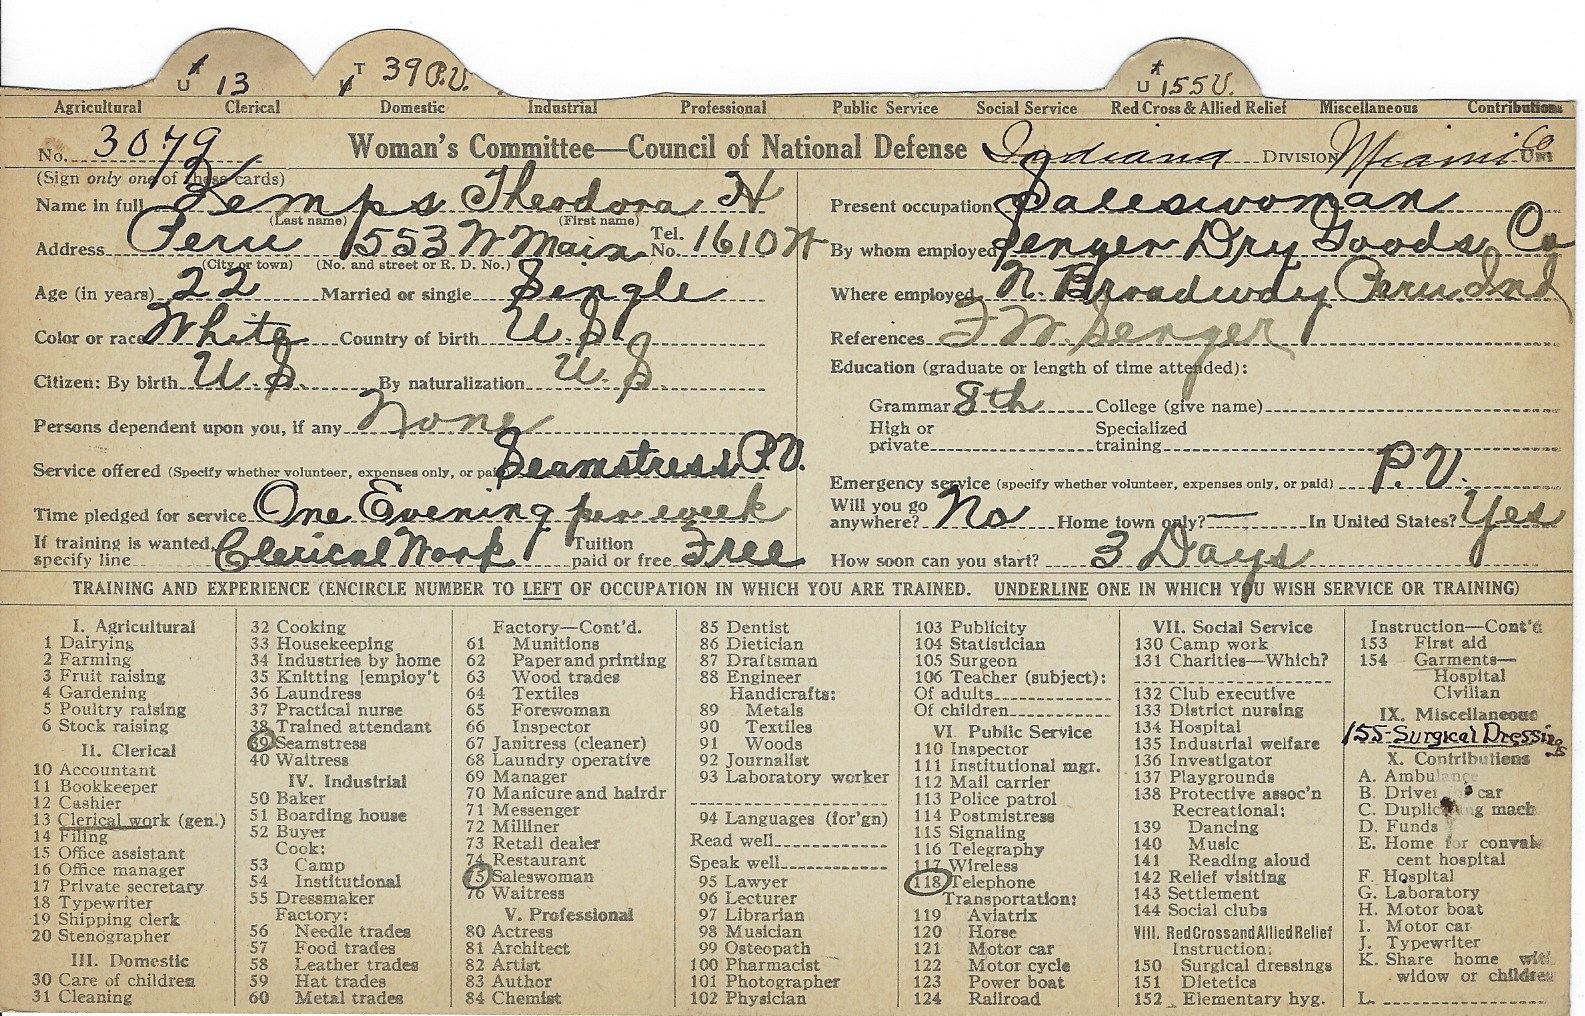 U 13 T 39 P.V. U 155 U.
Agricultural Clerical Domestic Industrial Professional Public Service Social Service Red Cross & Allied Relief Miscellaneous Contributions
No. 3079 Woman's Committee—Council of National Defense Indiana DIVISION Miami Co UNIT
(Sign only one of these cards)
Name in full Zemps Theodora H
(Last name) (First name)
Address Peru 553 W Main Tel. No. 1610 W
(City or town) (No. and street or R. D. No.)
Age (in years) 22 Married or single Single
Color or race White Country of birth U.S.
Citizen: By birth U.S. By naturalization U.S.
Persons dependent upon you, if any None
Service offered (Specify whether volunteer, expenses only, or paid) Seamstress P.V.
Time pledged for service One Evening per week
If training is wanted, specify line Clerical Work Tuition paid or free Free
Present occupation Saleswoman
By whom employed Senger Dry Goods Co
Where employed N. Broadway Peru Ind
References F W. Senger
Education (graduate or length of time attended):
Grammar 8th College (give name)
High or private Specialized training
Emergency service (specify whether volunteer, expenses only, or paid) P.V.
Will you go anywhere? No Home town only? — In United States? Yes
How soon can you start? 3 Days
TRAINING AND EXPERIENCE (ENCIRCLE NUMBER TO LEFT OF OCCUPATION IN WHICH YOU ARE TRAINED. UNDERLINE ONE IN WHICH YOU WISH SERVICE OR TRAINING)
I. Agricultural
1 Dairying
2 Farming
3 Fruit raising
4 Gardening
5 Poultry raising
6 Stock raising
II. Clerical
10 Accountant
11 Bookkeeper
12 Cashier
13 Clerical work (gen.)
14 Filing
15 Office assistant
16 Office manager
17 Private secretary
18 Typewriter
19 Shipping clerk
20 Stenographer
III. Domestic
30 Care of children
31 Cleaning
32 Cooking
33 Housekeeping
34 Industries by home
35 Knitting [employ't
36 Laundress
37 Practical nurse
38 Trained attendant
39 Seamstress
40 Waitress
IV. Industrial
50 Baker
51 Boarding house
52 Buyer
Cook:
53 Camp
54 Institutional
55 Dressmaker
Factory:
56 Needle trades
57 Food trades
58 Leather trades
59 Hat trades
60 Metal trades
Factory—Cont'd.
61 Munitions
62 Paper and printing
63 Wood trades
64 Textiles
65 Forewoman
66 Inspector
67 Janitress (cleaner)
68 Laundry operative
69 Manager
70 Manicure and hairdr
71 Messenger
72 Milliner
73 Retail dealer
74 Restaurant
75 Saleswoman
76 Waitress
V. Professional
80 Actress
81 Architect
82 Artist
83 Author
84 Chemist
85 Dentist
86 Dietician
87 Draftsman
88 Engineer
Handicrafts:
89 Metals
90 Textiles
91 Woods
92 Journalist
93 Laboratory worker
94 Languages (for'gn)
Read well
Speak well
95 Lawyer
96 Lecturer
97 Librarian
98 Musician
99 Osteopath
100 Pharmacist
101 Photographer
102 Physician
103 Publicity
104 Statistician
105 Surgeon
106 Teacher (subject):
Of adults
Of children
VI. Public Service
110 Inspector
111 Institutional mgr.
112 Mail carrier
113 Police patrol
114 Postmistress
115 Signaling
116 Telegraphy
117 Wireless
118 Telephone
Transportation:
119 Aviatrix
120 Horse
121 Motor car
122 Motor cycle
123 Power boat
124 Railroad
VII. Social Service
130 Camp work
131 Charities—Which?
132 Club executive
133 District nursing
134 Hospital
135 Industrial welfare
136 Investigator
137 Playgrounds
138 Protective assoc'n
Recreational:
139 Dancing
140 Music
141 Reading aloud
142 Relief visiting
143 Settlement
144 Social clubs
VIII. Red Cross and Allied Relief
Instruction:
150 Surgical dressings
151 Dietetics
152 Elementary hyg.
Instruction—Cont'd
153 First aid
154 Garments—
Hospital
Civilian
IX. Miscellaneous
155-Surgical Dressings
X. Contributions
A. Ambulance
B. Driver car
C. Duplicating mach
D. Funds
E. Home for conval
cent hospital
F. Hospital
G. Laboratory
H. Motor boat
I. Motor car
J. Typewriter
K. Share home with
widow or children
L.